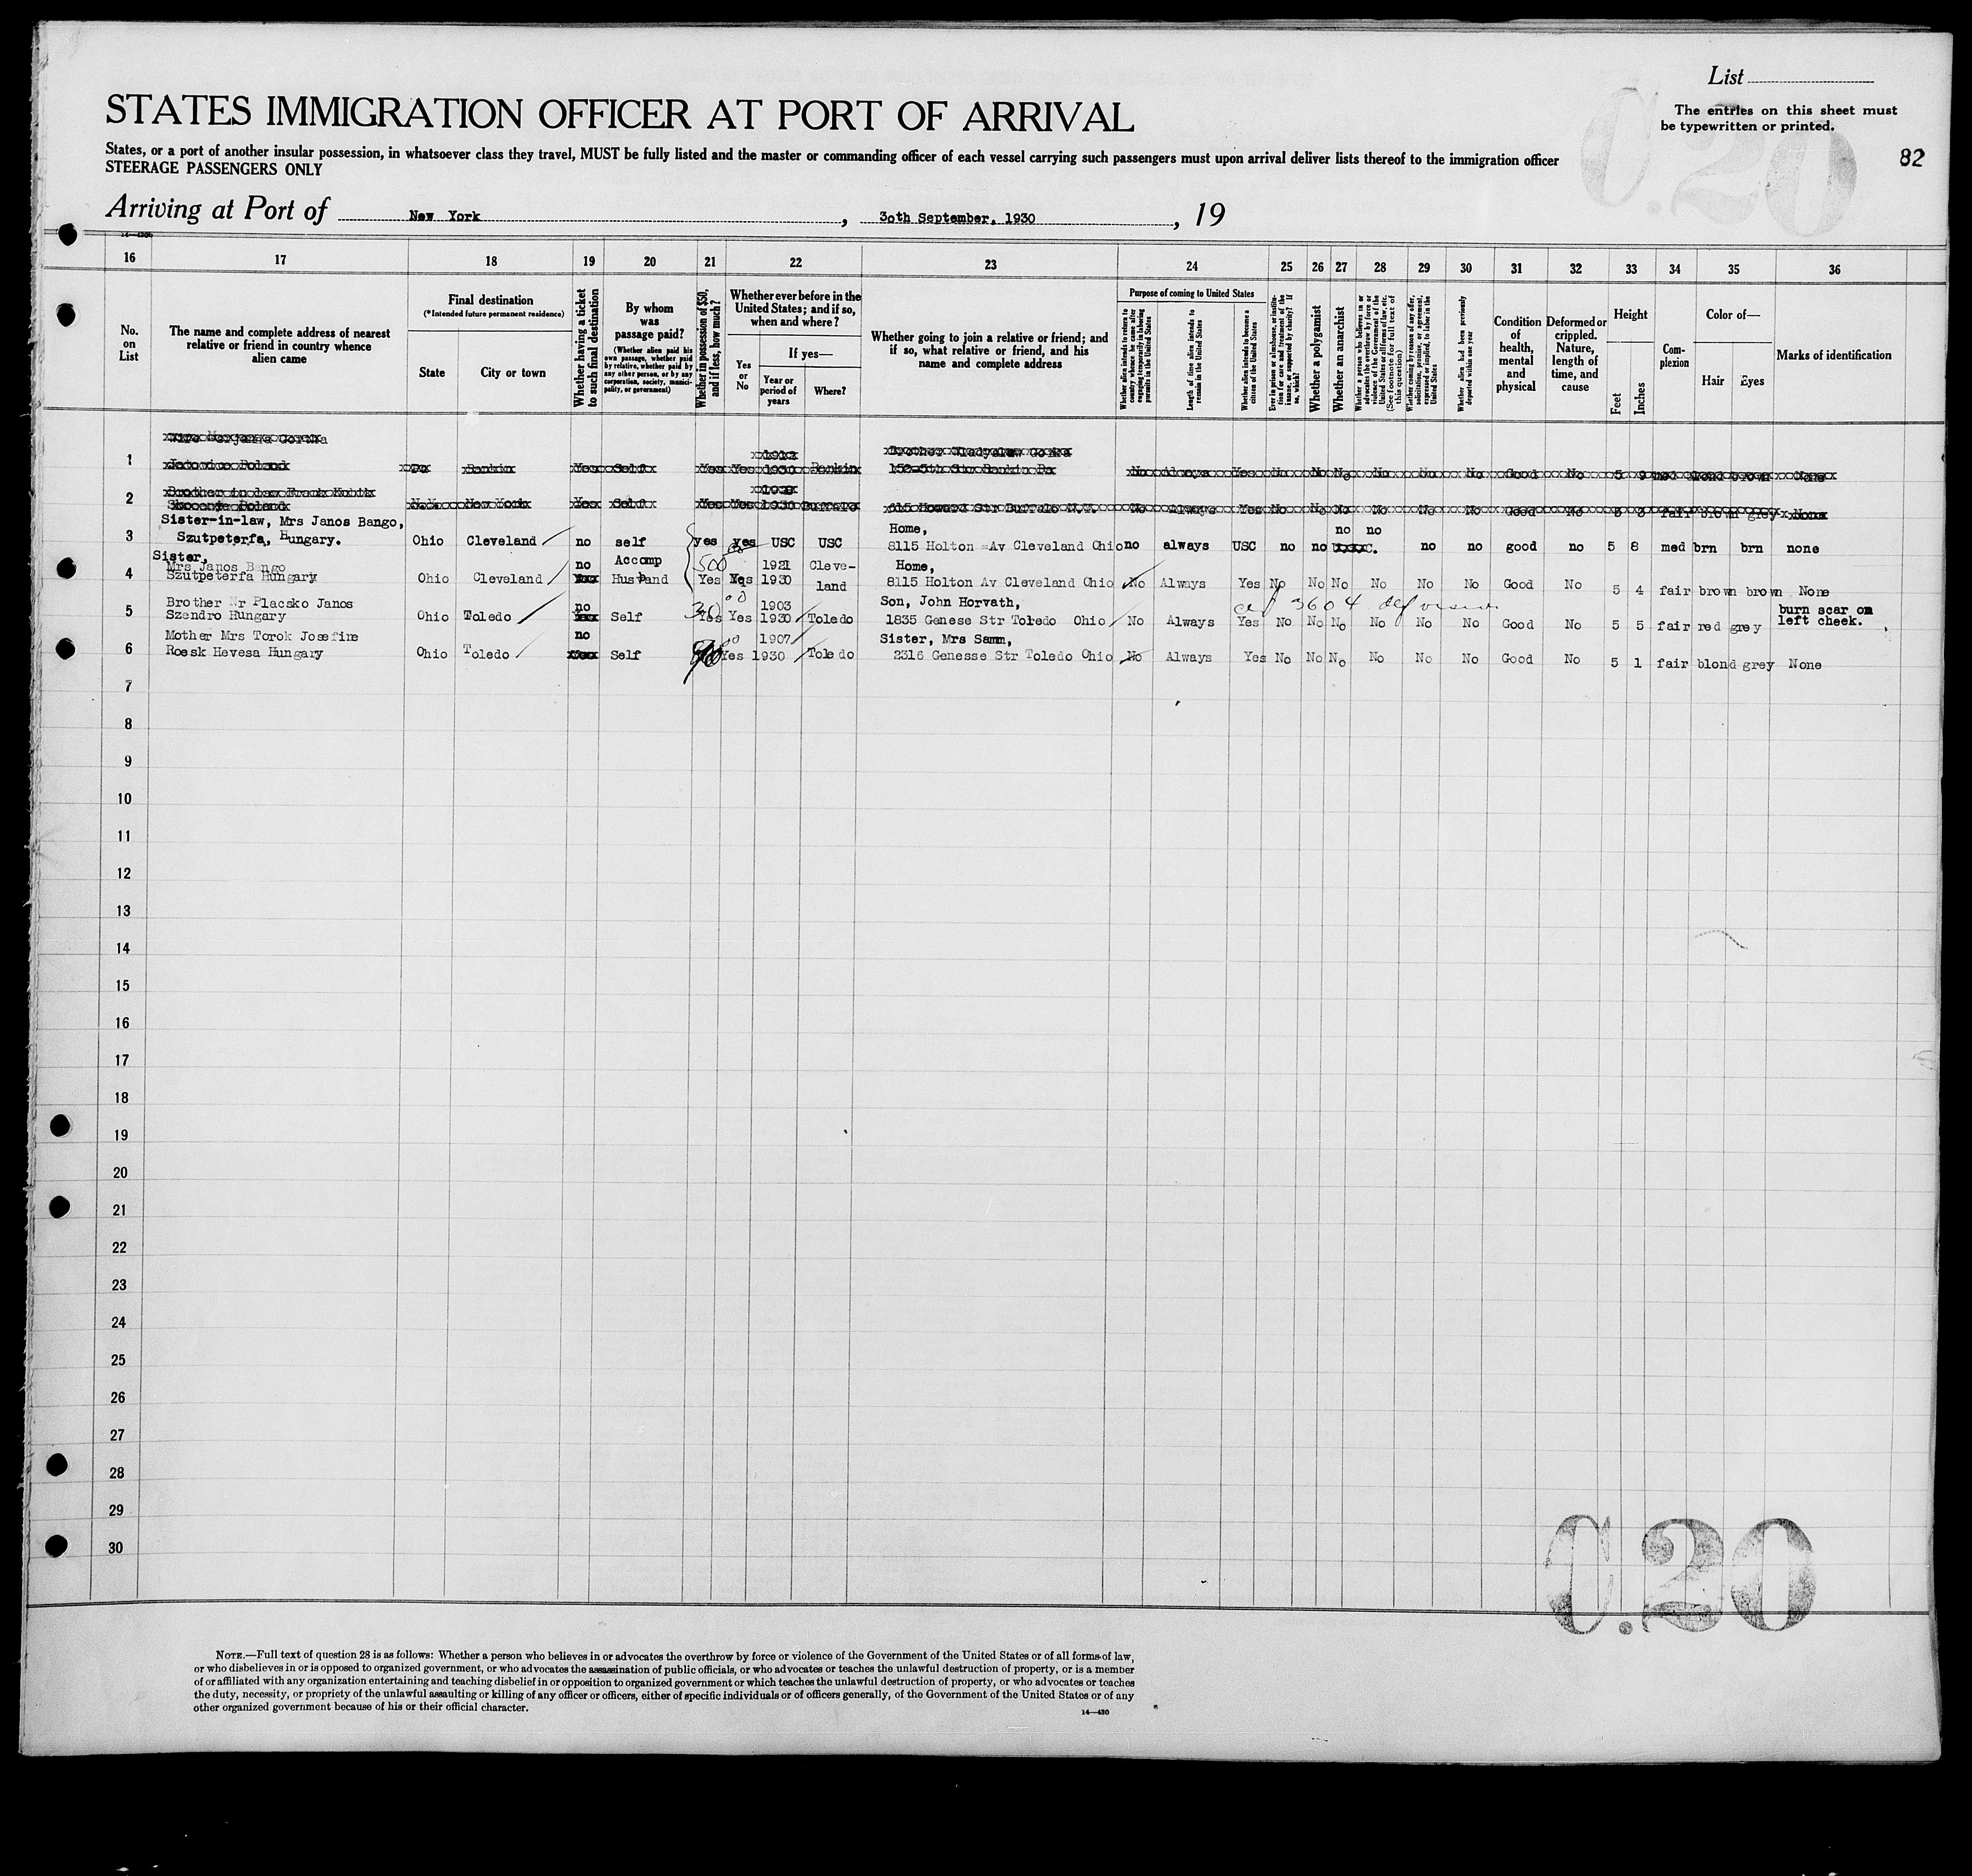 List
The entries on this sheet must
be typewritten or printed.
STATES IMMIGRATION OFFICER AT PORT OF ARRIVAL
States, or a port of another insular possession, in whatsoever class they travel, MUST be fully listed and the master or commanding officer of each vessel carrying such passengers must upon arrival deliver lists thereof to the immigration officer
STEERAGE PASSENGERS ONLY
C.20
82
Arriving at Port of New York, 30th September, 1930, 19
16 17 18 19 20 21 22 23 24 25 26 27 28 29 30 31 32 33 34 35 36
No. on List
The name and complete address of nearest relative or friend in country whence alien came
Final destination
(*Intended future permanent residence)
State
City or town
Whether having a ticket to such final destination
By whom was passage paid?
(Whether alien paid his own passage, whether paid by relative, whether paid by any other person, or by any corporation, society, municipality, or government)
Whether in possession of $50, and if less, how much?
Whether ever before in the United States; and if so, when and where?
Yes or No
If yes—
Year or period of years
Where?
Whether going to join a relative or friend; and if so, what relative or friend, and his name and complete address
Purpose of coming to United States
Length of time alien intends to remain in the United States
Whether alien intends to become a citizen of the United States
Whether a polygamist
Whether an anarchist
(See footnote for full text of this question)
Whether alien had been previously deported within one year
Condition of health, mental and physical
Deformed or crippled. Nature, length of time, and cause
Height
Feet
Inches
Complexion
Color of—
Hair
Eyes
Marks of identification
1
Yes Self Yes Yes 1930 Rankin No Always Yes No No No No No No Good No 5 9 None
2
Brother in law Frank
N.Y. New York Yes Self Yes Yes 1930 Buffalo 615 Howard Str Buffalo N.Y. No Always Yes No No No No No No Good No 5 3 fair brown grey None
Sister-in-law, Mrs Janos Bango, Home, no no
3 Szutpeterfa, Hungary. Ohio Cleveland no self yes yes USC USC 8115 Holton Av Cleveland Ohio no always USC no no no no good no 5 8 med brn brn none
Sister,
Mrs Janos Bango no Accomp 500 1921 Cleve- Home,
4 Szutpeterfa Hungary Ohio Cleveland Husband Yes Yes 1930 land 8115 Holton Av Cleveland Ohio No Always Yes No No No No No No Good No 5 4 fair brown brown None
Brother Mr Placsko Janos no 30 1903 Son, John Horvath, 3604
5 Szendro Hungary Ohio Toledo Self Yes Yes 1930 Toledo 1835 Genese Str Toledo Ohio No Always Yes No No No No No No Good No 5 5 fair red grey burn scar on left cheek.
Mother Mrs Torok Josefine no 1907 Sister, Mrs Samm,
6 Roesk Hevesa Hungary Ohio Toledo Self Yes 1930 Toledo 2316 Genesse Str Toledo Ohio No Always Yes No No No No No No Good No 5 1 fair blond grey None
7
8
9
10
11
12
13
14
15
16
17
18
19
20
21
22
23
24
25
26
27
28
29
30
C.20
NOTE.—Full text of question 28 is as follows: Whether a person who believes in or advocates the overthrow by force or violence of the Government of the United States or of all forms of law,
or who disbelieves in or is opposed to organized government, or who advocates the assassination of public officials, or who advocates or teaches the unlawful destruction of property, or is a member
of or affiliated with any organization entertaining and teaching disbelief in or opposition to organized government or which teaches the unlawful destruction of property, or who advocates or teaches
the duty, necessity, or propriety of the unlawful assaulting or killing of any officer or officers, either of specific individuals or of officers generally, of the Government of the United States or of any
other organized government because of his or their official character.
14—430